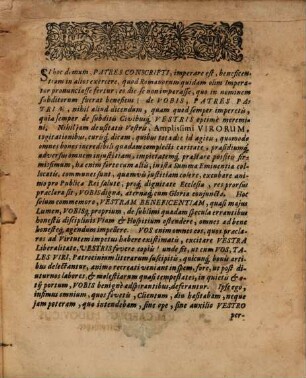 SI hoc demum, PATRES CONSCRIPTI, imperare est, benefícen-
tiam in alios exercere, quod Romanorum quidam olim Impera-
tor pronunciasse fertur; es dic se non imperasse, quo in neminem
subditorum fuerat beneficus: de VOBIS, PATRES PA-
TRIÆ, nihil aliud dicendum, quam quod semper imperetis,
quia semper de subditis Civibusq; VESTRIS optime meremi-
ni. Nihil jam de usitatis Vestris, Amplissimi VIRORUM,
cogitationibus, curisq; dicam, quibus totis diebus id agitis, quo modo
omnes bonos incredibili quadam complecti caritate, præsidiumq;
adversus omnem injustitiam, impietatemq; præstare possitis fir-
missimum, ha enim seræ curæ aliis, in ista Summa Eminentia col-
locatis, communes sunt, quamvis justitiam colere, excubare ani-
mo pro Publica Rei salute, proq; dignitate Ecclesiæ, respersus
præclara sit, VOBIS digna, æternaq; cum Gloria conjuncta. Hoc
seium commemoro, VESTRAM BENEFICENTIAM, quasi majus
Lumen, VOBISq; proprium, de sublimi quadam specula errantibus
honestis discipulis Viam et Hospitium ostendere, omnes ad bene
honesteq; agendum impellere. VOS enim omnes eos, quos præcla-
res ad Virtutem impetus habere cavistis, excitare VESTRA
Liberalitate, VESTRISq; fovere copiis: unde fit, ut cum VOS, TA-
LES VIRI, Patrocinium literarum suscipitis, quicunq; bonis artibus
delectantur, animo recreati veniant in spem, fore, ut post
diuturnos labores, & molestiarum quasi tempestates, in quietis & o-
tii portum, VOBIS benigne adspirantibus, deferantur. Ipse ego,
infimus omnium, quos fovetis, Clientum, diu hæsitabam, neque
jam poteram, quo intendebam, sine ope, sine auxilio VESTRO
per-